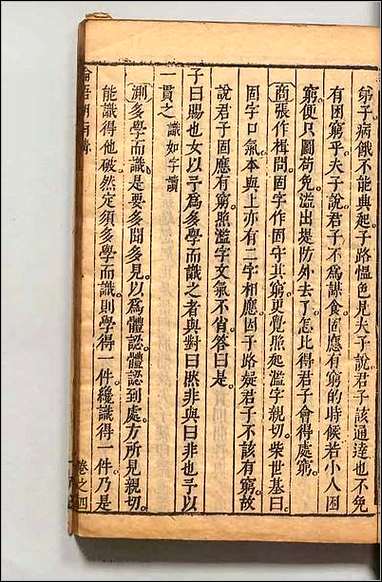 弟子病餓不能興起子路慍色見夫子說君子該通達也不免
有困窮乎夫子說君子不爲謀食固應有窮的時候若小人困
窮便只圖苟免溢出堤防外去了怎比得君子會得處窮
商張作楫問固字作固守其窮更覺照起濫字親切柴世基曰
固字口氣本與上亦有二字相應因子路疑君子不該有窮故
說君子固應有窮照濫字文氣不肖答曰是
子曰賜也女以予爲多學而識之者與對曰然非與曰非也予以
一貫之 識如字讀
測多學而識是要多聞多見以爲體認體認到處方所見親切
能識得他破然定須多學而識則學得一件纔識得一件乃是
卷之四